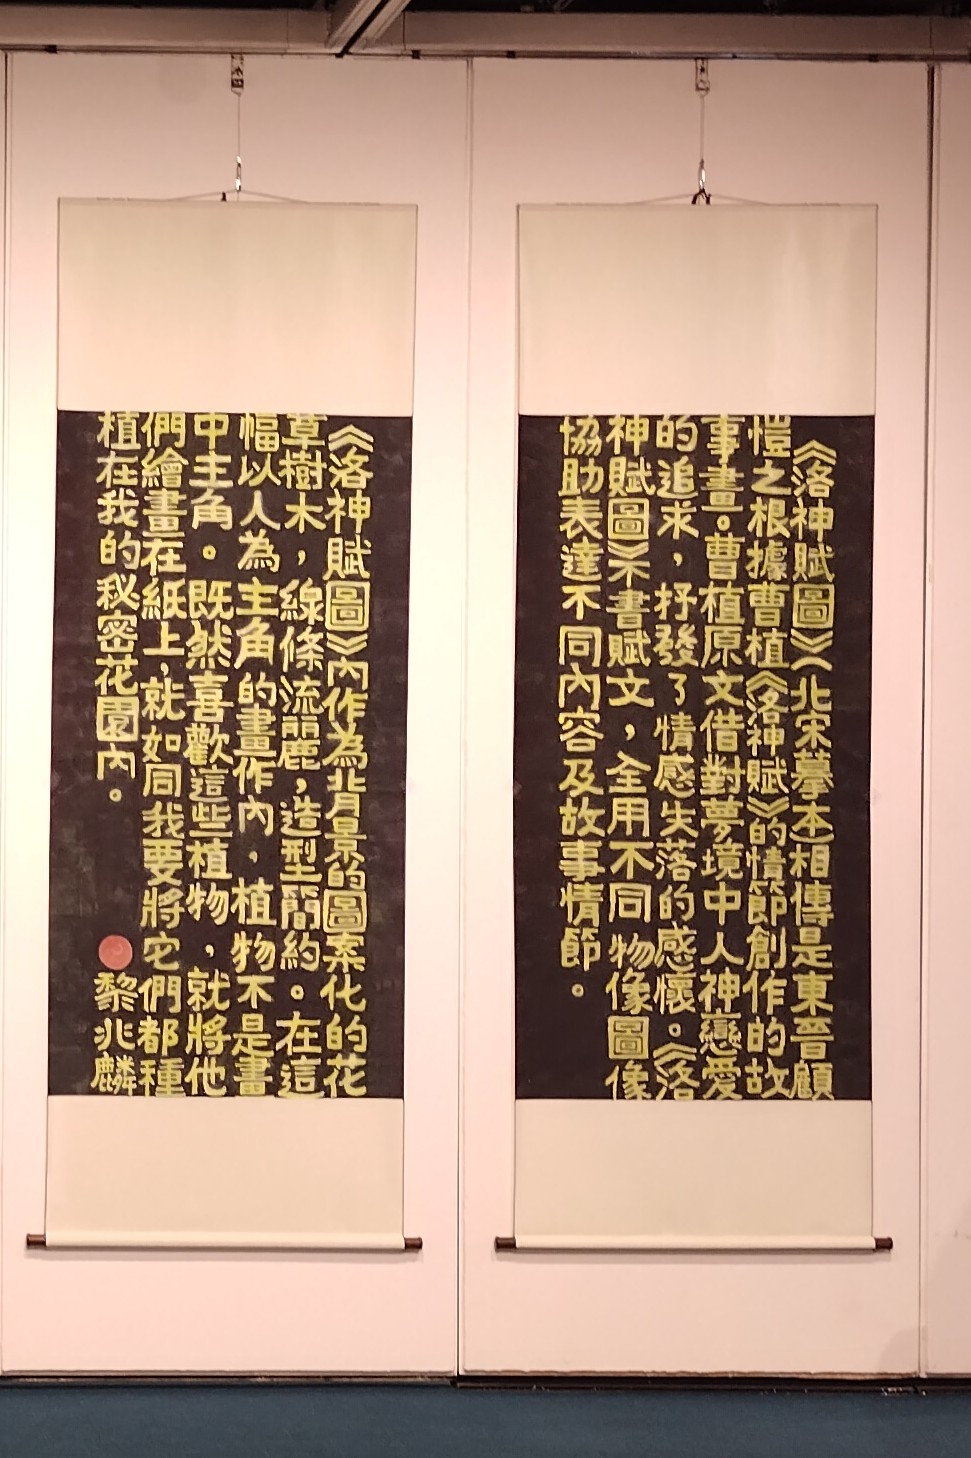 《洛神賦圖》（北宋摹本）相傳是東晉顧
愷之根據曹植《洛神賦》的情節創作的故
事畫。曹植原文借對夢境中人神戀愛
的追求，抒發了情感失落的感懷。《洛
神賦圖》不書賦文，全用不同物像圖像
協助表達不同內容及故事情節。
《洛神賦圖》內作為背景的圖案化的花
草樹木，線條流麗，造型簡約。在這
幅以人為主角的畫作內，植物不是畫
中主角。既然喜歡這些植物，就將他
們繪畫在紙上，就如同我要將它們都種
植在我的秘密花園內。
黎兆麟